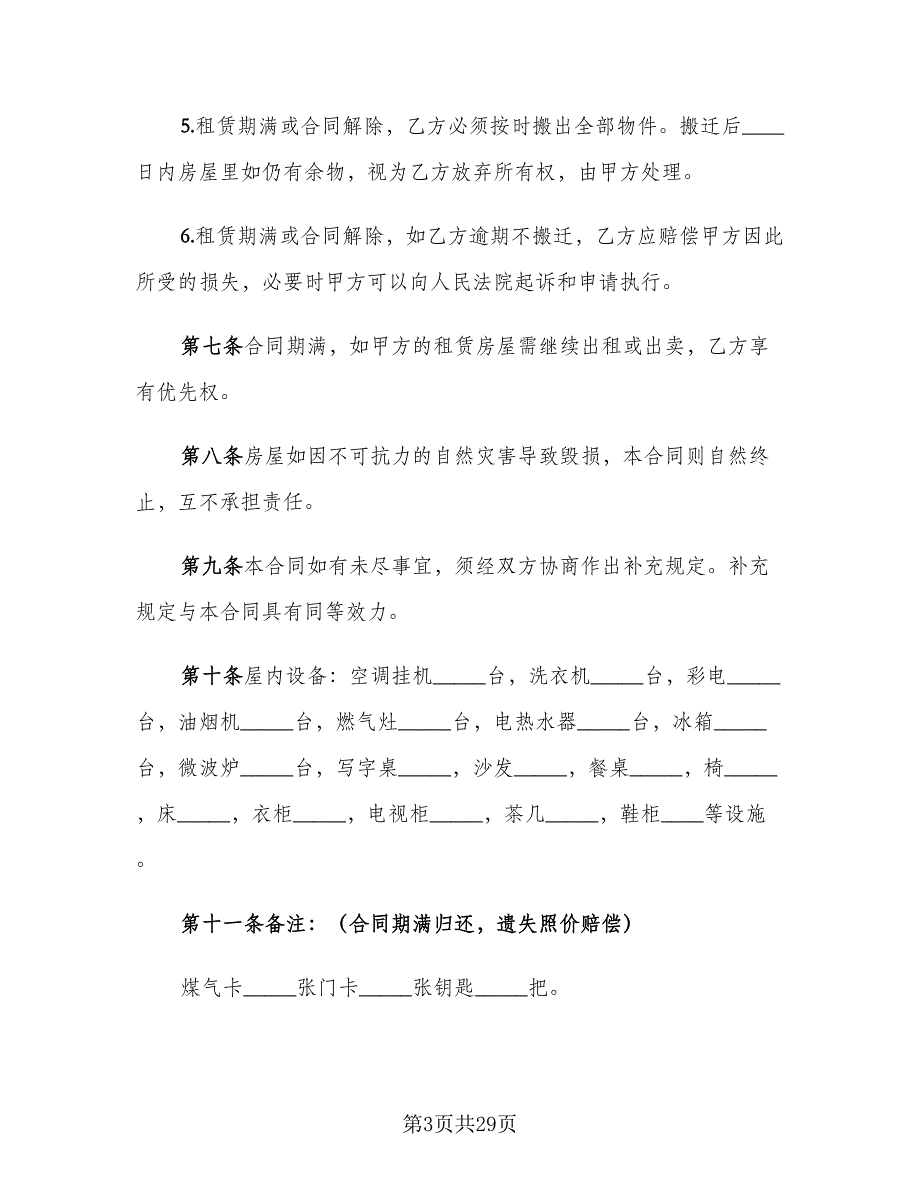 5.租赁期满或合同解除，乙方必须按时搬出全部物件。搬迁后____
日内房屋里如仍有余物，视为乙方放弃所有权，由甲方处理。
6.租赁期满或合同解除，如乙方逾期不搬迁，乙方应赔偿甲方因此
所受的损失，必要时甲方可以向人民法院起诉和申请执行。
第七条合同期满，如甲方的租赁房屋需继续出租或出卖，乙方享
有优先权。
第八条房屋如因不可抗力的自然灾害导致毁损，本合同则自然终
止，互不承担责任。
第九条本合同如有未尽事宜，须经双方协商作出补充规定。补充
规定与本合同具有同等效力。
第十条屋内设备：空调挂机_____台，洗衣机_____台，彩电_____
台，油烟机_____台，燃气灶_____台，电热水器_____台，冰箱_____
台，微波炉_____台，写字桌_____，沙发_____，餐桌_____，椅_____
，床_____，衣柜_____，电视柜_____，茶几_____，鞋柜____等设施
。
第十一条备注：（合同期满归还，遗失照价赔偿）
煤气卡_____张门卡_____张钥匙_____把。
第3页共29页